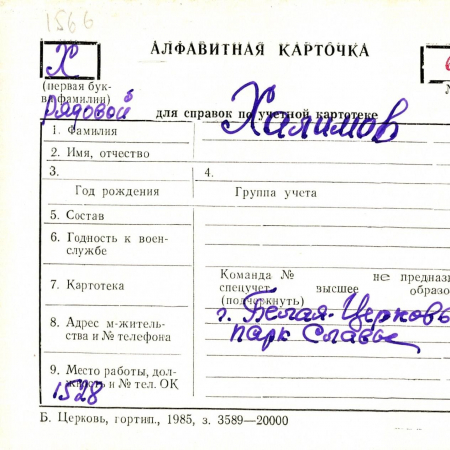 1566
Х
АЛФАВИТНАЯ КАРТОЧКА
(первая бук-
ва фамилии)
рядовой
для справок по учетной картотеке
Халимов
1. Фамилия
2. Имя, отчество
3.
4.
Год рождения
Группа учета
5. Состав
6. Годность к воен-
службе
7. Картотека
Команда № не предназ
спецучет, высшее образо
(подчеркнуть)
8. Адрес м-житель-
ства и № телефона
г. Белая-Церковь
парк Славы
9. Место работы, дол-
жность и № тел. ОК
1528
Б. Церковь, гортип., 1985, з. 3589—20000